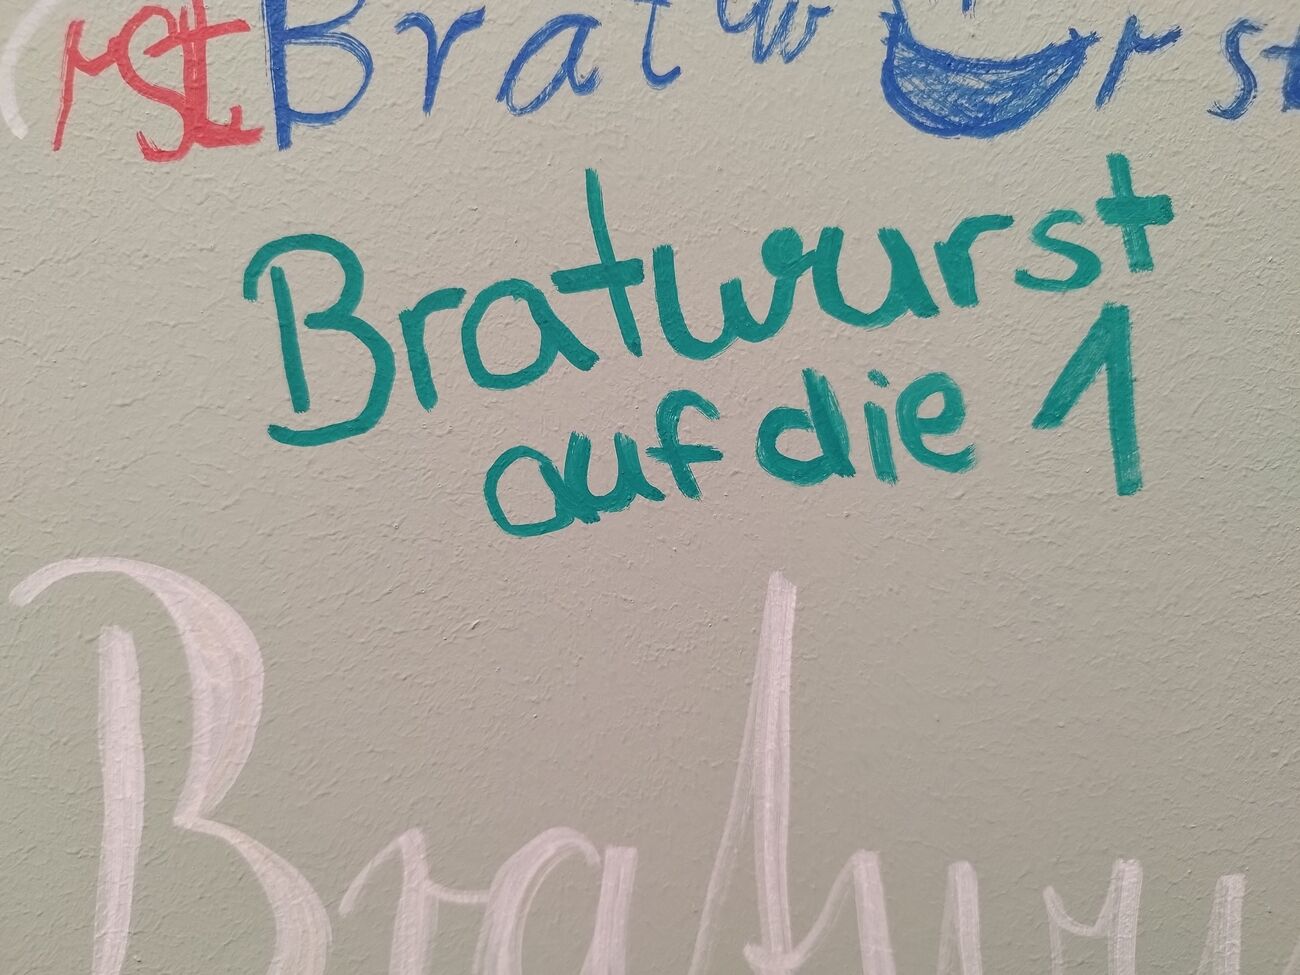 rst Bratwurst
Bratwurst
auf die 1
Bratwu